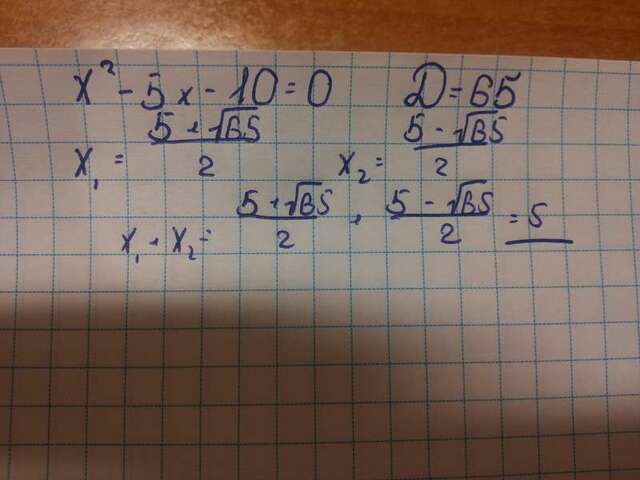 x² - 5x - 10 = 0 D = 65
x₁ = (5 + √65)/2 x₂ = (5 - √65)/2
x₁ + x₂ = (5 + √65)/2 + (5 - √65)/2 = 5